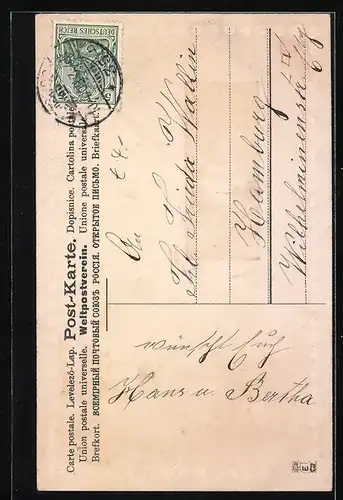 Carte postale. Levelezö-Lap. Post-Karte. Dopisnice. Cartolina postale
Union postale universelle. Weltpostverein. Unione postale universale
Brefkort. ВСЕМІРНЫЙ ПОЧТОВЫЙ СОЮЗЪ РОССІЯ. ОТКРЫТОЕ ПИСЬМО. Briefkaart
DEUTSCHES REICH
An
Frl. Frida Wallin
Hamburg
Wilhelminenstr.
wünscht Euch
Hans u. Bertha